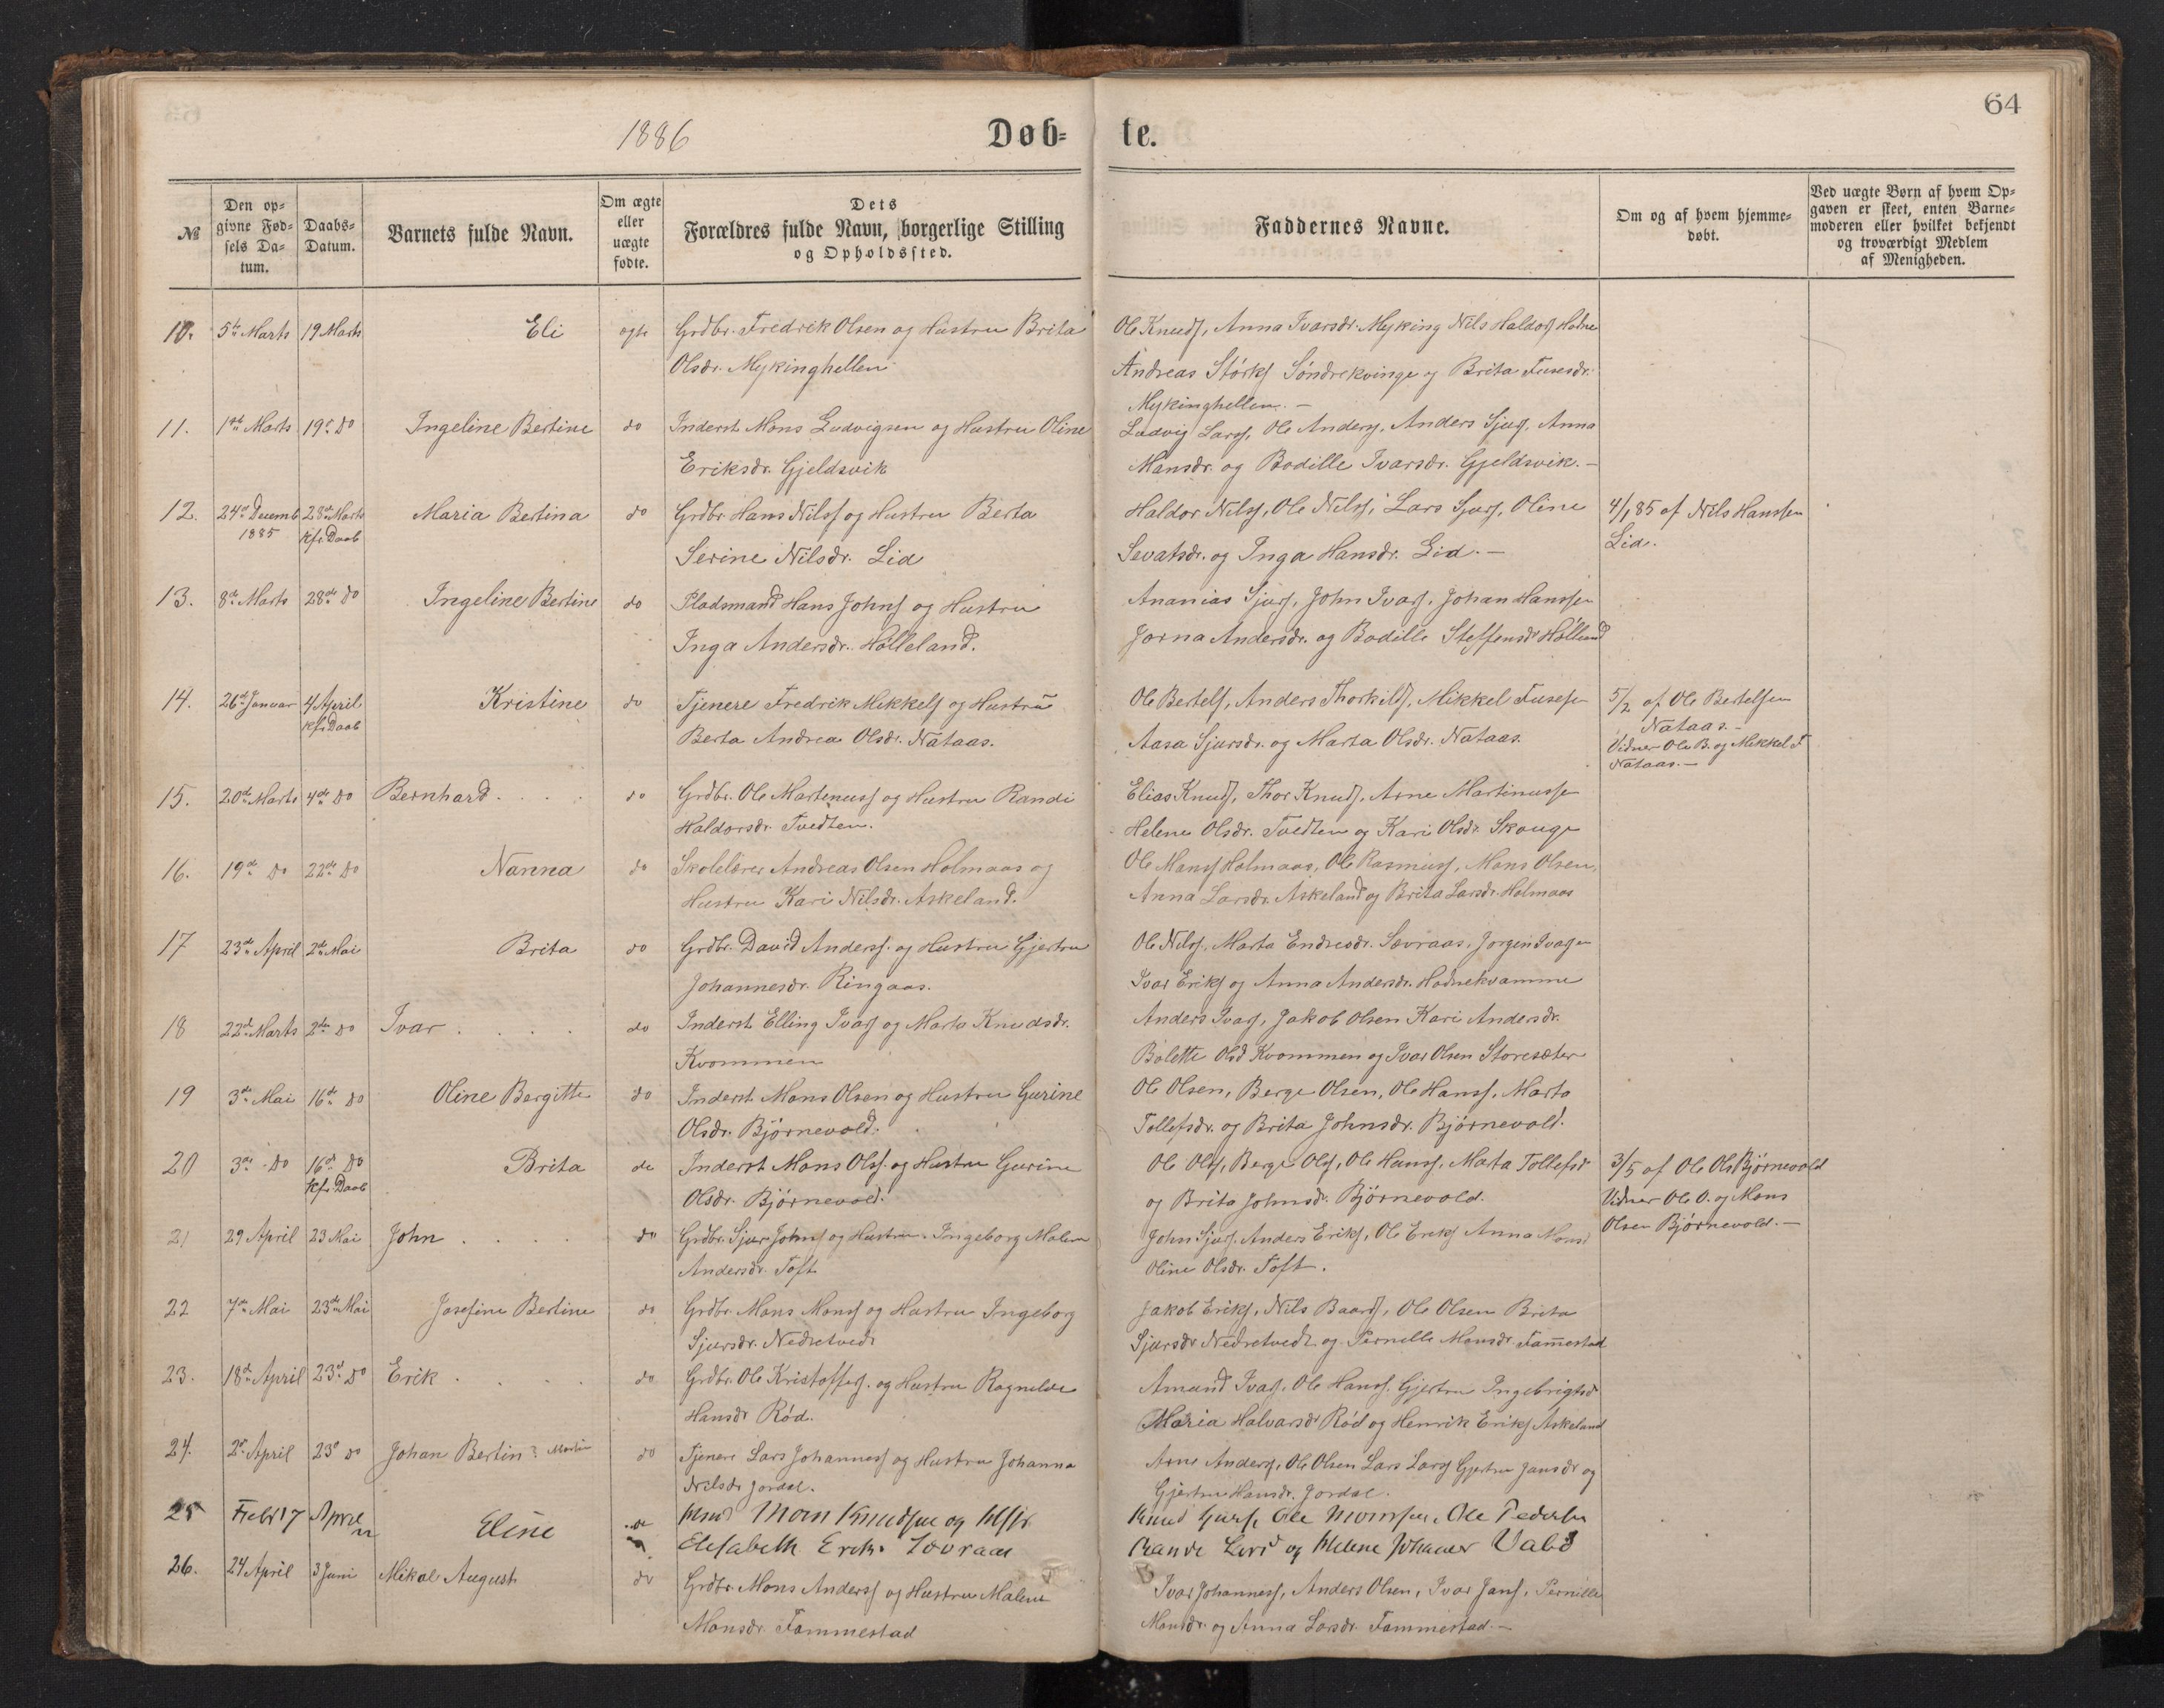 64
1886
Døb- te.
№
Den op-
givne Fød-
sels Da-
tum.
Daabs-
Datum.
Barnets fulde Navn.
Om ægte
eller
uægte
fødte.
Dets
Forældres fulde Navn, borgerlige Stilling
og Opholdssted.
Faddernes Navne.
Om og af hvem hjemme-
døbt.
Ved uægte Børn af hvem Op-
gaven er skeet, enten Barne-
moderen eller hvilket bekjendt
og troværdigt Medlem
af Menigheden.
10. 5te Marts 19 Marts Eli ægte Grdbr. Fredrik Olsen og Hustru Brita
Olsdr. Mykinghellen
Ole Knuds, Anna Ivarsdr. Myking Nils Haldors Hodne
Andreas Størks Søndrekvinge og Brita Fusesdr.
Mykinghellen. –
11. 1ste Marts 19de do Ingeline Bertine do Inderst Mons Ludvigsen og Hustru Oline
Eriksdr. Gjeldsvik
Ludvig Larss, Ole Anders, Anders Sjurs, Anna
Mansdr. og Bodille Ivarsdr. Gjeldsvik. –
12. 24de Decemb 28de Marts Maria Bertina do Grdbr. Hans Nilss og Hustru Berta
1885 kfr. Daab
Serine Nilsdr. Lid
Haldor Nilss, Ole Nilss, Lars Sjurs, Oline
Sevatsdr. og Inga Hansdr. Lid. –
4/1 85 af Nils Hanssen
Lid.
13. 8de Marts 28de do Ingeline Bertine do Pladsmand Hans Johns og Hustru
Inga Andersdr. Hølleland.
Ananias Sjurs, John Ivars, Johan Hanssen
Jorna Andersdr. og Bodille Steffensdr Hølland
14. 26de Januar 4 April Kristine do Tjenere Fredrik Mikkels og Hustru
kfr. Daab
Berta Andrea Olsdr. Nataas.
Ole Bertels, Anders Thorkilds, Mikkel Fusesen
Aasa Sjursdr. og Marta Olsdr. Nataas.
5/2 af Ole Bertelsen
Nataas. –
Vidner Ole B. og Mikkel F
Nataas. –
15. 20de Marts 4de do Bernhard . . . . do Grdbr. Ole Martinuss og Hustru Randi
Haldorsdr. Tvedten.
Elias Knuds, Thor Knuds, Arne Martinusse
Helene Olsdr. Tvedten og Kari Olsdr. Skauge
16. 19de do 22de do Nanna do Skolelærer Andreas Olsen Holmaas og
Hustru Kari Nilsdr. Askeland.
Ole Monss Holmaas, Ole Rasmuss, Mons Olsen,
Anna Larsdr. Askeland og Brita Larsdr. Holmaas
17 23de April 2de Mai Brita do Grdbr. David Anderss. og Hustru Gjertru
Johannesdr. Ringaas.
Ole Nilss, Marta Endresdr. Sævraas, Jørgen Ivarsen
Ivar Eriks og Anna Andersdr. Hodnekvamme
18 22de Marts 2de do Ivar . . . . do Inderst Elling Ivars og Marta Knudsdr.
Kvommen
Anders Ivars, Jakob Olsen Kari Andersdr.
Bolette Olsd Kvommen og Ivar Olsen Storesæter
19 3de Mai 16de do Oline Bergitte do Inderst Mons Olsen og Hustru Gurine
Olsdr. Bjørnevold.
Ole Olsen, Berge Olsen, Ole Hanss, Marta
Tollefsdr. og Brita Johnsdr. Bjørnevold.
20 3de do 16de do Brita do Inderst Mons Olss. og Hustru Gurine
kfr. Daab
Olsdr. Bjørnevold.
Ole Olss, Berge Olss, Ole Hanss, Marta Tollefsdr
og Brita Johnsdr. Bjørnevold.
3/5 af Ole Ols Bjørnevold
Vidner Ole O. og Mons
Olsen Bjørnevold. –
21 29 April 23 Mai John . . . . do Grdbr. Sjur Johns og Hustru Ingeborg Malene
Andersdr. Toft
John Sjurs. Anders Eriks, Ole Eriks Anna Monsd
Oline Olsdr. Toft.
22 7de Mai 23de Mai Josefine Bertine do Grdbr. Mons Monss og Hustru Ingeborg
Sjursdr. Nedretvedt
Jakob Eriks, Nils Baards, Ole Olsen Brita
Sjursdr Nedretvedt og Pernille Monsdr. Fammestad
23. 18de April 23de do Erik . . . . do Grdbr. Ole Kristoffers. og Hustru Ragnilde
Hansdr Rød.
Amund Ivars, Ole Hanss. Gjertru Ingebrigtsd
Maria Halvarsdr Rød og Henrik Eriks Askeland
24. 2de April 23de do Johan Bertin? Martin do Tjener Lars Johanness og Hustru Johanna
Nilsdr Jordal.
Arne Anders, Ole Olsen Lars Lars Gjertru Jansdr og
Gjertru Hansdr. Jordal.
25 Febr 17 April Eline do Mons Knudsen og
Elisabeth Eriks
Ole Monsen, Ole Pedersen
og Helene
26. 24 April 3 Juni Mikal August do Grdbr. Mons Anderss og Hustru Malene
Monsdr. Fammestad
Ivar Johanness, Anders Olsen, Ivar Jans, Pernille
Monsdr. og Anna Larsdr. Fammestad. –